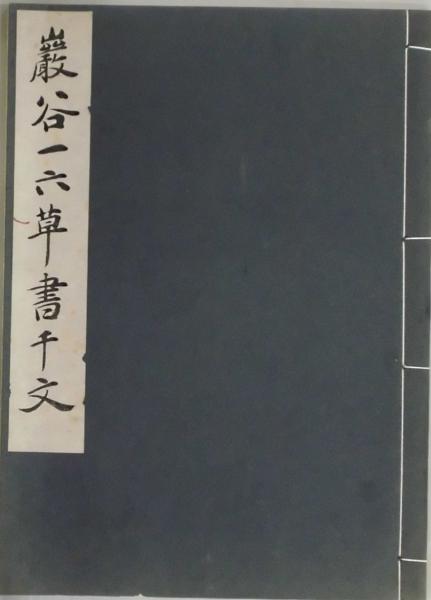 巖谷一六草書千文